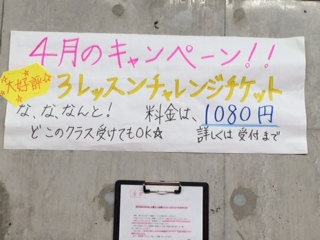 4月のキャンペーン!!
大好評
3レッスンチャレンジチケット
な、な、なんと! 料金は、1080円
どこのクラス受けてもOK☆ 詳しくは受付まで